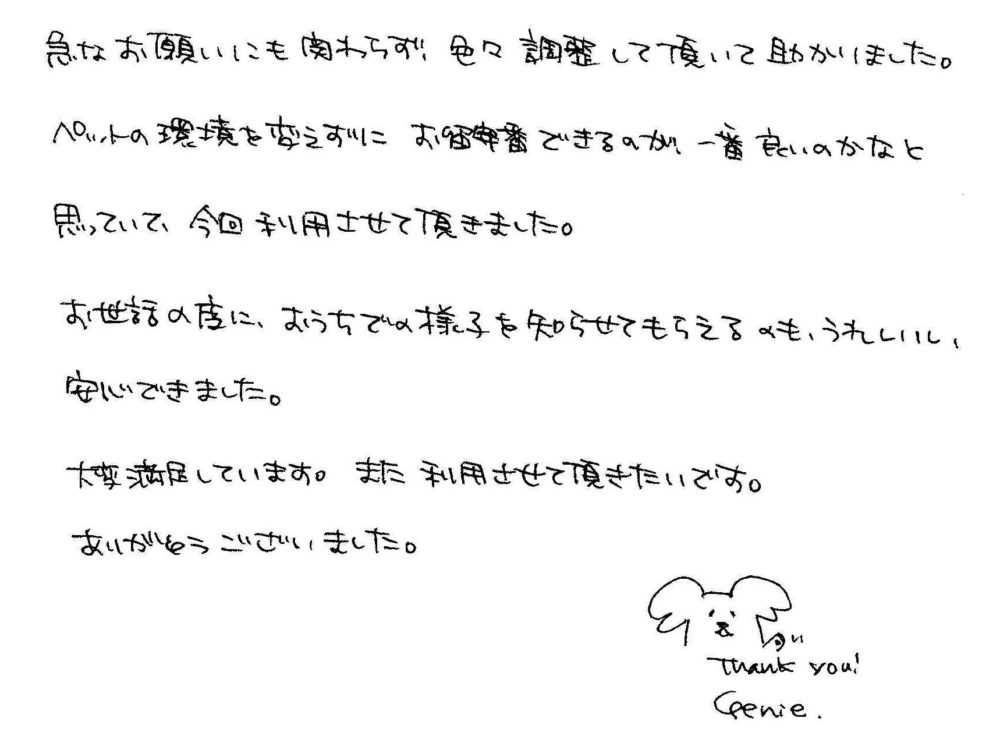 急なお願いにも関わらず、色々調整して頂いて助かりました。
ペットの環境を変えずにお留守番できるのが、一番良いのかなと
思っていて、今回利用させて頂きました。
お世話の度に、おうちでの様子を知らせてもらえるのも、うれしいし、
安心できました。
大変満足しています。また利用させて頂きたいです。
ありがとうございました。
Thank you!
Genie.